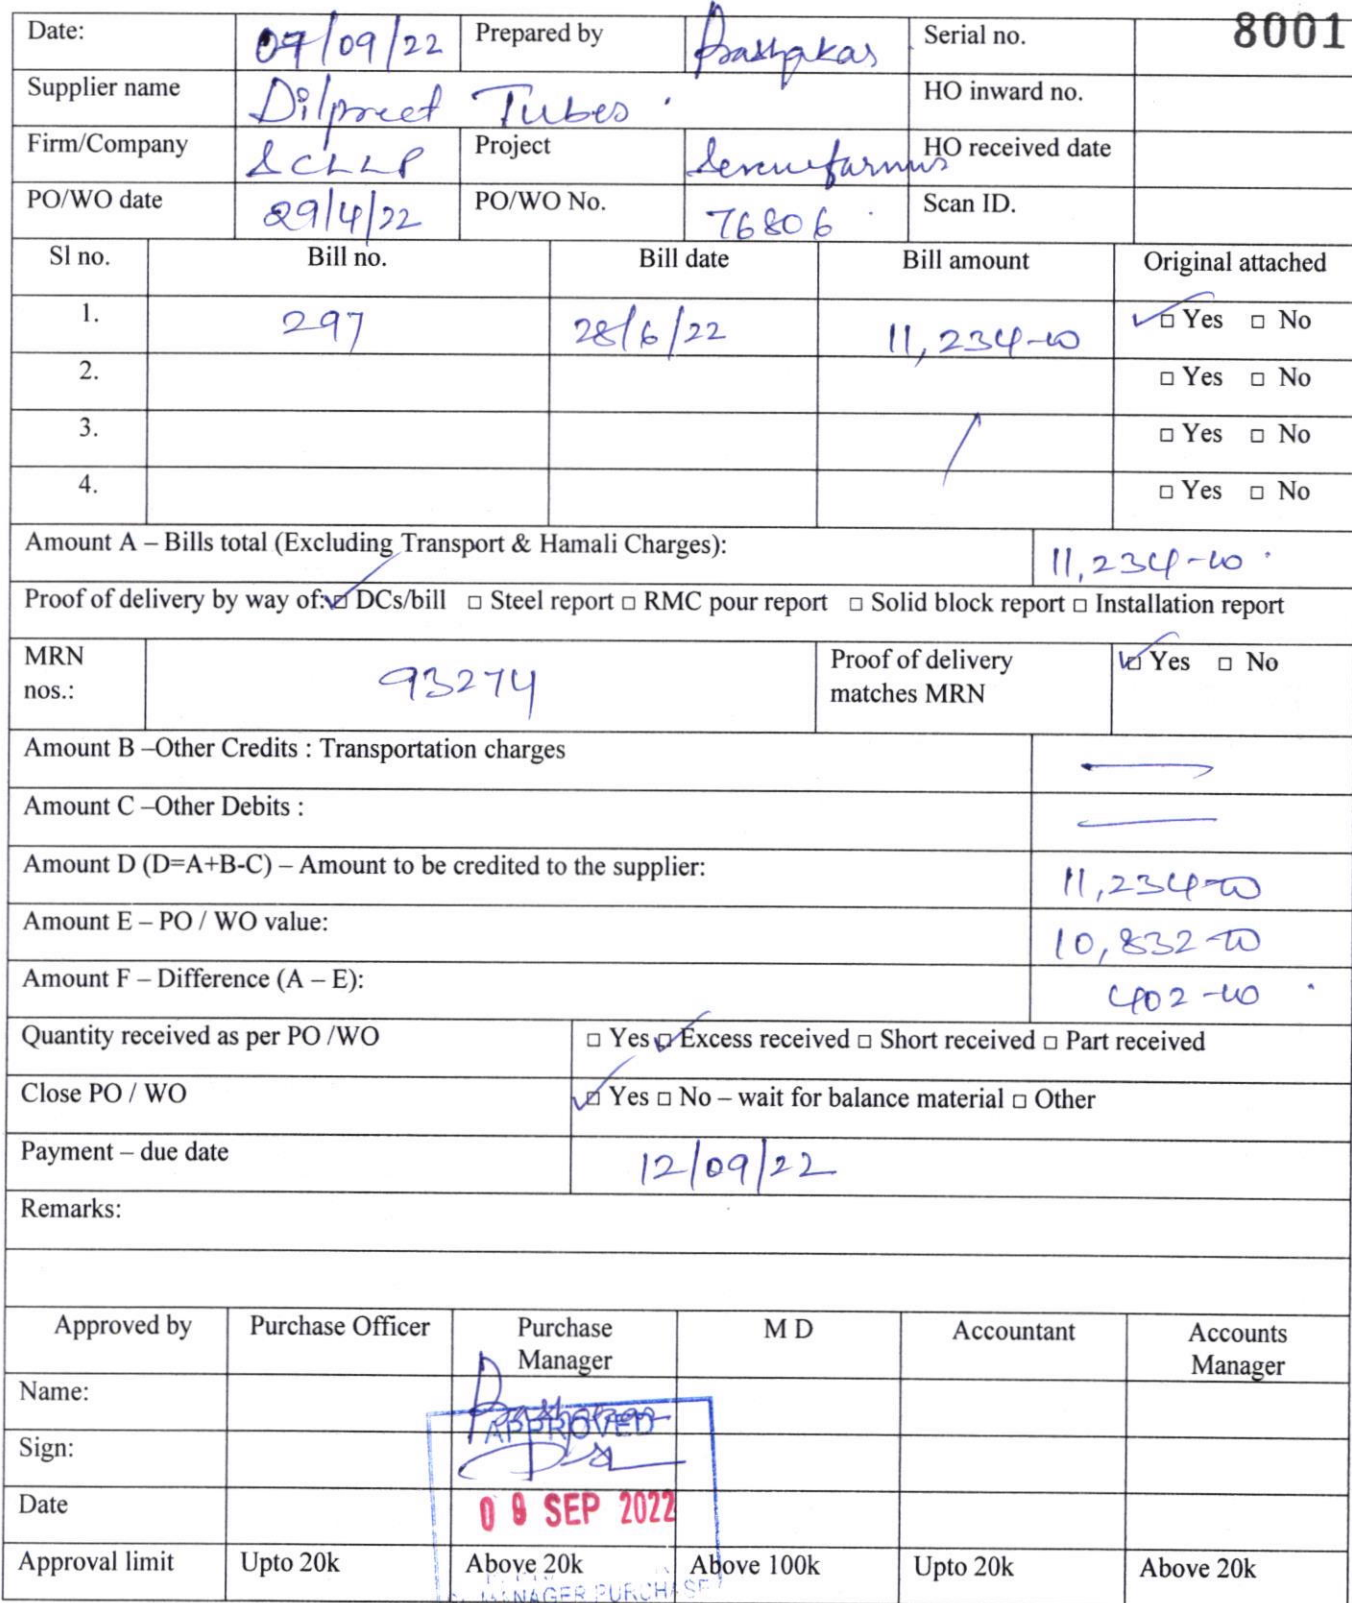 Date: 07/09/22 Prepared by Prabhakar Serial no. 8001
Supplier name Dilpreet Tubes HO inward no.
Firm/Company SCLLP Project Serenefarms HO received date
PO/WO date 29/4/22 PO/WO No. 76806 Scan ID.
Sl no. Bill no. Bill date Bill amount Original attached
1. 297 28/6/22 11,234-00 ✓□ Yes □ No
2. □ Yes □ No
3. □ Yes □ No
4. □ Yes □ No
Amount A – Bills total (Excluding Transport & Hamali Charges): 11,234-00
Proof of delivery by way of: ✓□ DCs/bill □ Steel report □ RMC pour report □ Solid block report □ Installation report
MRN nos.: 93274 Proof of delivery matches MRN ✓□ Yes □ No
Amount B –Other Credits : Transportation charges —
Amount C –Other Debits : —
Amount D (D=A+B-C) – Amount to be credited to the supplier: 11,234-00
Amount E – PO / WO value: 10,832-00
Amount F – Difference (A – E): 402-00
Quantity received as per PO /WO □ Yes ✓□ Excess received □ Short received □ Part received
Close PO / WO ✓□ Yes □ No – wait for balance material □ Other
Payment – due date 12/09/22
Remarks:
Approved by Purchase Officer Purchase Manager M D Accountant Accounts Manager
Name: Prabhakar
APPROVED
Sign:
Date 09 SEP 2022
Approval limit Upto 20k Above 20k Above 100k Upto 20k Above 20k
MANAGER PURCHASE